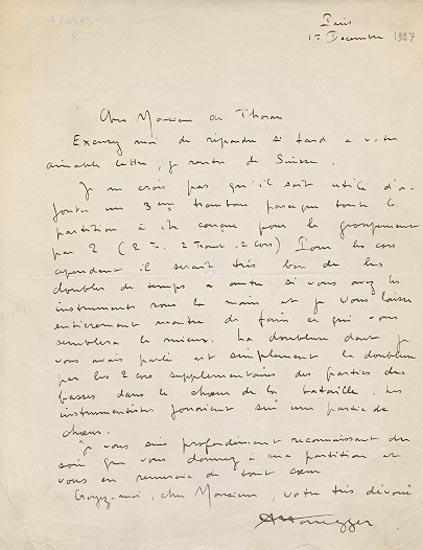 Paris
1er Decembre 1927
Cher Monsieur de Thoran
Excusez moi de répondre si tard à votre
aimable lettre, je rentre de Suisse.
Je ne crois pas qu'il soit utile d'a-
jouter un 3em trombone parceque toute la
partition a été conçue pour le groupement
par 2 (2 Tr. 2 Tromb. 2 Cors) Pour les cors
cependant il serait très bon de les
doubler de temps a autre si vous avez les
instruments sous la main et je vous laisse
entierement maitre de faire ce qui vous
semblera le mieux. La doublure dont je
vous avais parlé est simplement la doublure
par les 2 cors supplementaires des parties des
basses dans le chœur de la bataille. Les
instrumentistes joueraient sur une partie de
chœur.
Je vous suis profondément reconnaissant du
soin que vous donnez à ma partition et
vous en remercie de tout cœur
Croyez-moi, cher Monsieur, votre très dévoué
AHonegger